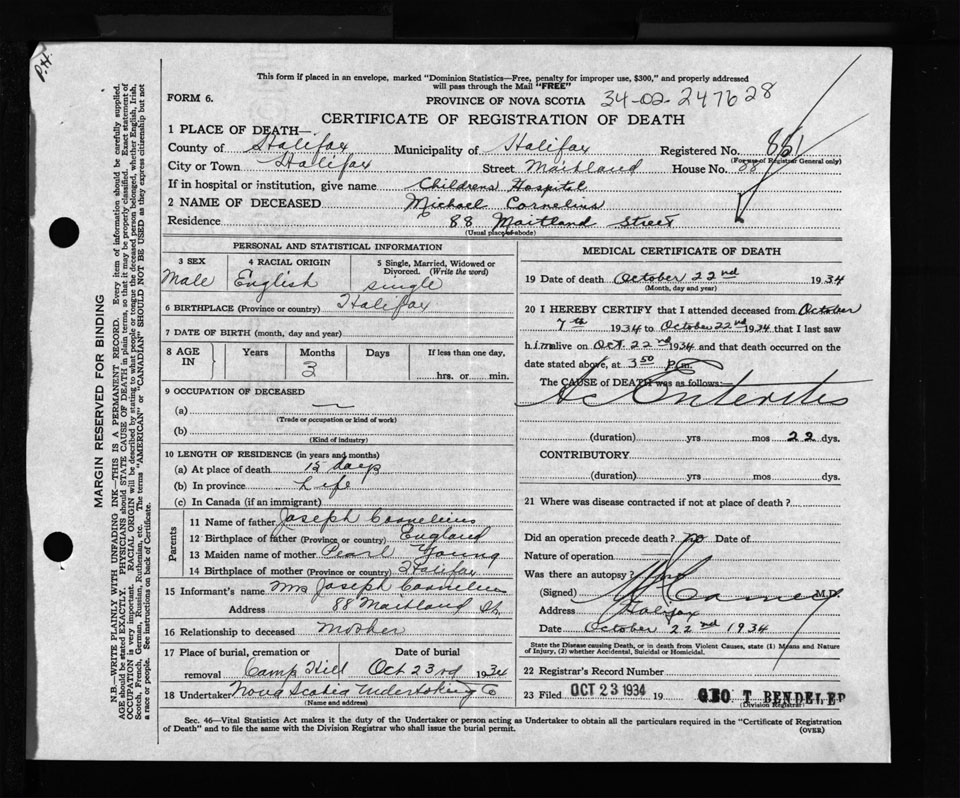 P.H.
This form if placed in an envelope, marked "Dominion Statistics—Free, penalty for improper use, $300," and properly addressed
will pass through the Mail "FREE"
FORM 6.
PROVINCE OF NOVA SCOTIA 34-02-247628
CERTIFICATE OF REGISTRATION OF DEATH
1 PLACE OF DEATH—
County of Halifax Municipality of Halifax Registered No. 881
(For use of Registrar General only)
City or Town Halifax Street Maitland House No. 88
If in hospital or institution, give name Childrens Hospital
2 NAME OF DECEASED Michael Cornelius
Residence 88 Maitland Street
(Usual place of abode)
PERSONAL AND STATISTICAL INFORMATION
3 SEX Male
4 RACIAL ORIGIN English
5 Single, Married, Widowed or
Divorced. (Write the word)
single
6 BIRTHPLACE (Province or country) Halifax
7 DATE OF BIRTH (month, day and year)
8 AGE IN
Years Months Days If less than one day,
3 hrs. or min.
9 OCCUPATION OF DECEASED
(a) —
(Trade or occupation or kind of work)
(b)
(Kind of industry)
10 LENGTH OF RESIDENCE (in years and months)
(a) At place of death 15 days
(b) In province Life
(c) In Canada (if an immigrant)
Parents
11 Name of father Joseph Cornelius
12 Birthplace of father (Province or country) England
13 Maiden name of mother Pearl Young
14 Birthplace of mother (Province or country) Halifax
15 Informant's name Mrs Joseph Cornelius
Address 88 Maitland St.
16 Relationship to deceased Mother
17 Place of burial, cremation or Date of burial
removal Camp Hill Oct 23rd 1934
18 Undertaker Nova Scotia Undertaking Co
(Name and address)
MEDICAL CERTIFICATE OF DEATH
19 Date of death October 22nd 1934
(Month, day and year)
20 I HEREBY CERTIFY that I attended deceased from October
7th 1934 to October 22nd 1934 that I last saw
him alive on Oct 22nd 1934 and that death occurred on the
date stated above, at 3 50 p.m.
The CAUSE of DEATH was as follows:—
Ac Enteritis
(duration) yrs mos 22 dys.
CONTRIBUTORY
(duration) yrs mos dys.
21 Where was disease contracted if not at place of death?
Did an operation precede death? no Date of
Nature of operation
Was there an autopsy? no
(Signed) M.D.
Address Halifax
Date October 22nd 1934
State the Disease causing Death, or in death from Violent Causes, state (1) Means and Nature
of Injury, (2) whether Accidental, Suicidal or Homicidal.
22 Registrar's Record Number
23 Filed OCT 23 1934 19 GEO T BENDELER
(Division Registrar)
Sec. 46—Vital Statistics Act makes it the duty of the Undertaker or person acting as Undertaker to obtain all the particulars required in the "Certificate of Registration
of Death" and to file the same with the Division Registrar who shall issue the burial permit. (OVER)
MARGIN RESERVED FOR BINDING
N.B.—WRITE PLAINLY WITH UNFADING INK—THIS IS A PERMANENT RECORD. Every item of information should be carefully supplied.
AGE should be stated EXACTLY. PHYSICIANS should STATE CAUSE OF DEATH in plain terms, so that it may be properly classified. Exact statement of
OCCUPATION is very important. RACIAL ORIGIN will be described by stating to what people or tongue the deceased person belonged, whether English, Irish,
Scotch, French, German, Russian, Ruthenian, etc. The terms "AMERICAN" or "CANADIAN" SHOULD NOT BE USED as they express citizenship but not
a race or people. See instructions on back of Certificate.